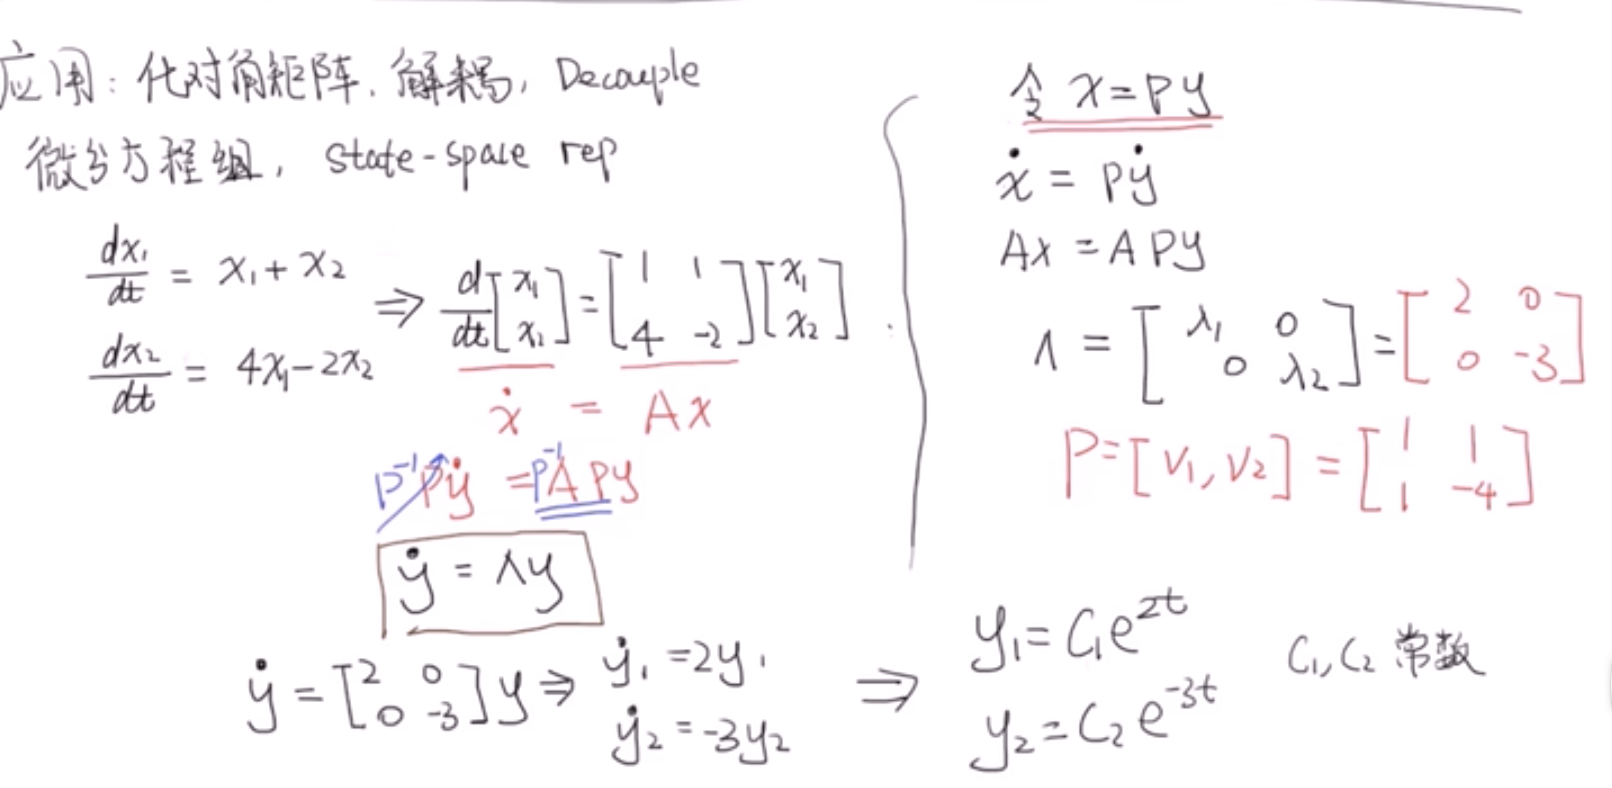 应用：化对角矩阵．解耦，Decouple
微分方程组，state-space rep
dx₁/dt = x₁ + x₂
dx₂/dt = 4x₁ - 2x₂
⇒ d/dt [x₁ x₂] = [1 1 4 -2] [x₁ x₂]
ẋ = Ax
P⁻¹Pẏ = P⁻¹APy
ẏ = Λy
ẏ = [2 0 0 -3] y ⇒ ẏ₁ = 2y₁
ẏ₂ = -3y₂
令 x = Py
ẋ = Pẏ
Ax = APy
Λ = [λ₁ 0 0 λ₂] = [2 0 0 -3]
P = [v₁, v₂] = [1 1 1 -4]
⇒ y₁ = C₁e²ᵗ
y₂ = C₂e⁻³ᵗ
C₁, C₂ 常数